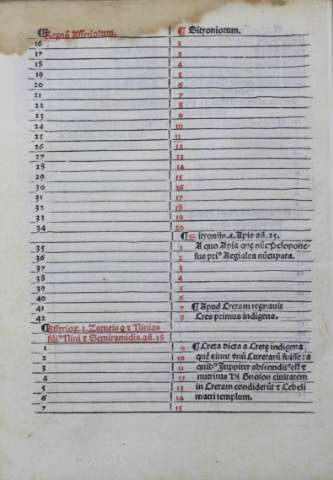 ¶Regnū Assiriorum.
16
17
18
19
20
21
22
23
24
25
26
27
28
29
30
31
32
33
34
35
36
37
38
39
40
41
42
Zameis q et Ninias
filiꝰ Nini et Semiramidis.
1
2
3
4
5
6
7
¶ Sitzoniorum.
2
3
4
5
6
7
8
9
10
11
12
13
14
15
16
17
18
19
20
4. Apis añ.25.
1 A quo Apia nūc Pelopone
2 sus priꝰ Aegialea nūcupata.
3
4
5
6
7 ¶ Apud Cretam regnauit
8 Cres primus indigena.
9 ¶ Creta dicta a Crete indigena
10 quē aiunt vnū Curetarū fuisse: a
11 quibꝰ Juppiter absconditꝰ est et
12 nutritus Hi Gnoson ciuitatem
13 in Cretam condiderūt et Cebeli
14 matri templum.
15